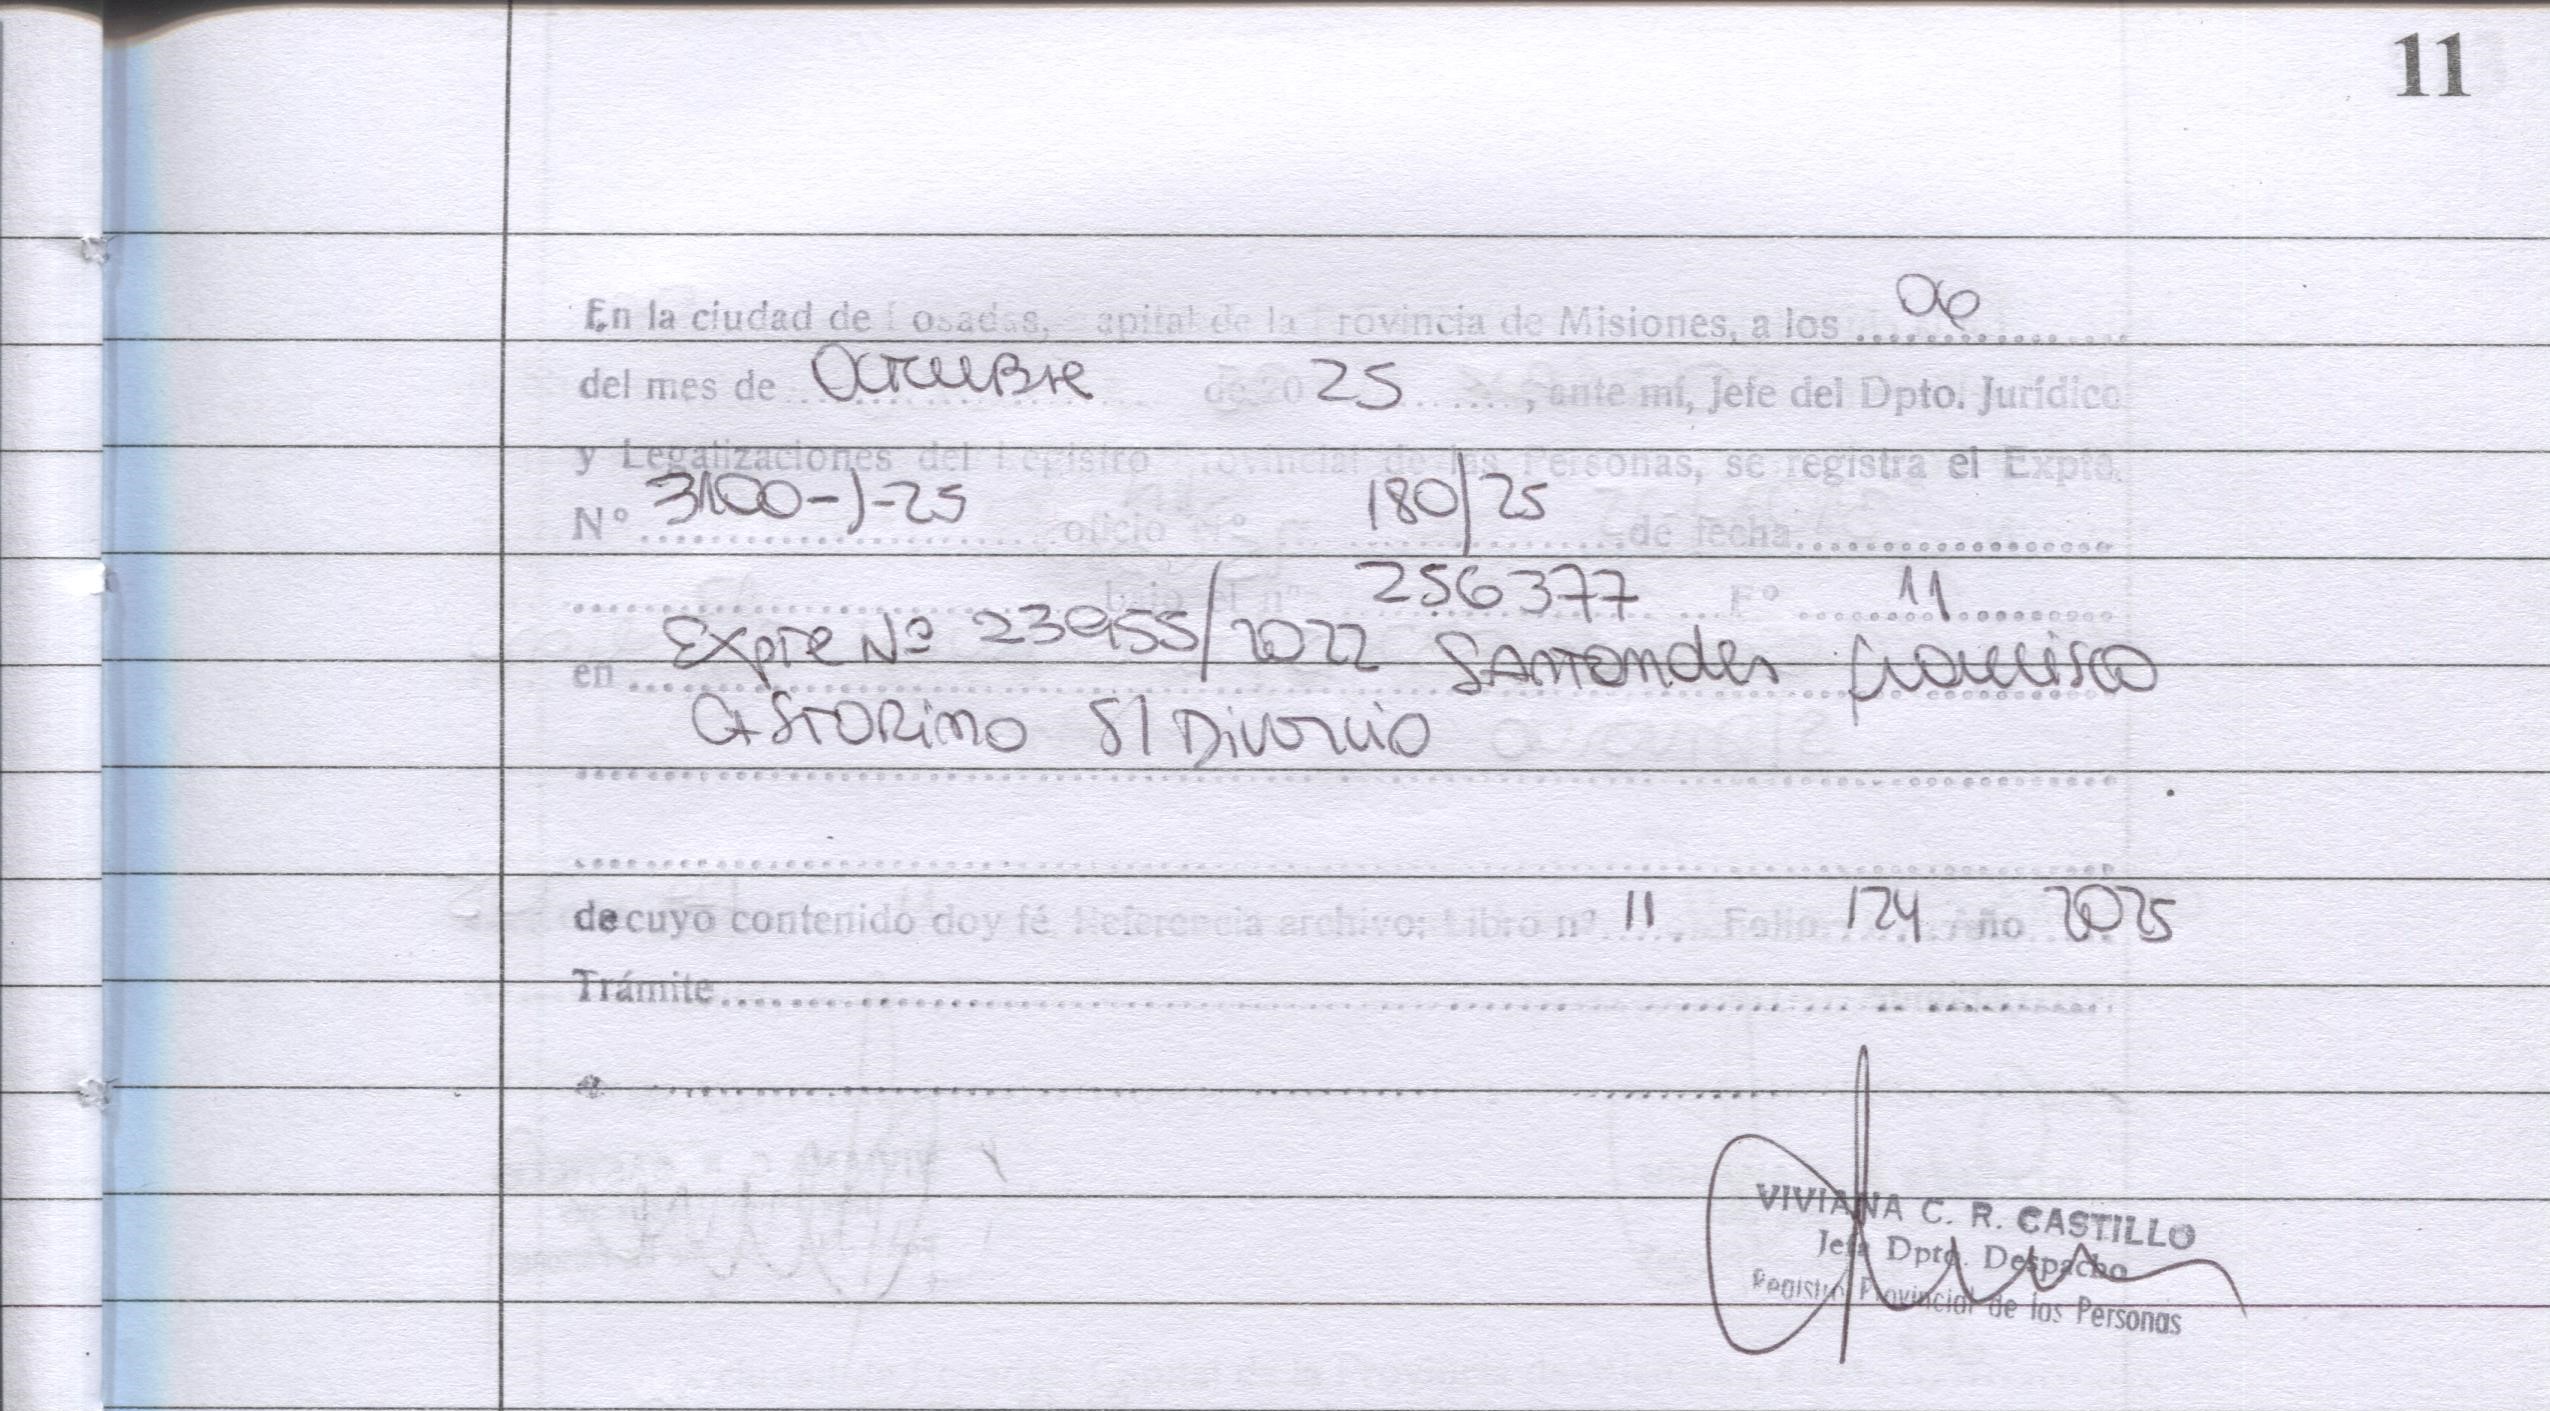 11
En la ciudad de Posadas, Capital de la Provincia de Misiones, a los 06
del mes de Octubre de 20 25, ante mí, Jefe del Dpto. Jurídico
y Legalizaciones del Registro Provincial de las Personas, se registra el Expte.
Nº 3100-J-25 oficio Nº 180/25 de fecha
bajo el nº 256377 Fº 11
en Expte Nº 23955/2022 Santander Francisco
CASTORino S/ Divorcio
de cuyo contenido doy fé. Referencia archivo: Libro nº 11 Folio 124 Año 2025
Trámite
VIVIANA C. R. CASTILLO
Jefa Dpto. Despacho
Registro Provincial de las Personas